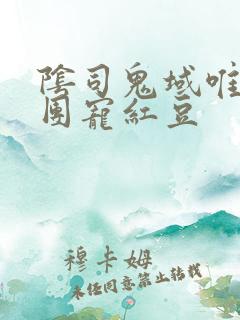 陰司鬼域唯
團寵紅豆
穆卡姆
未經同意禁止轉載